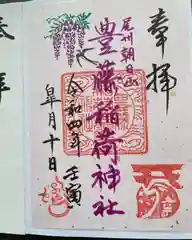 奉拝
尾州朝日山
豊藤稲荷神社
令和四年
壬寅
皐月十日